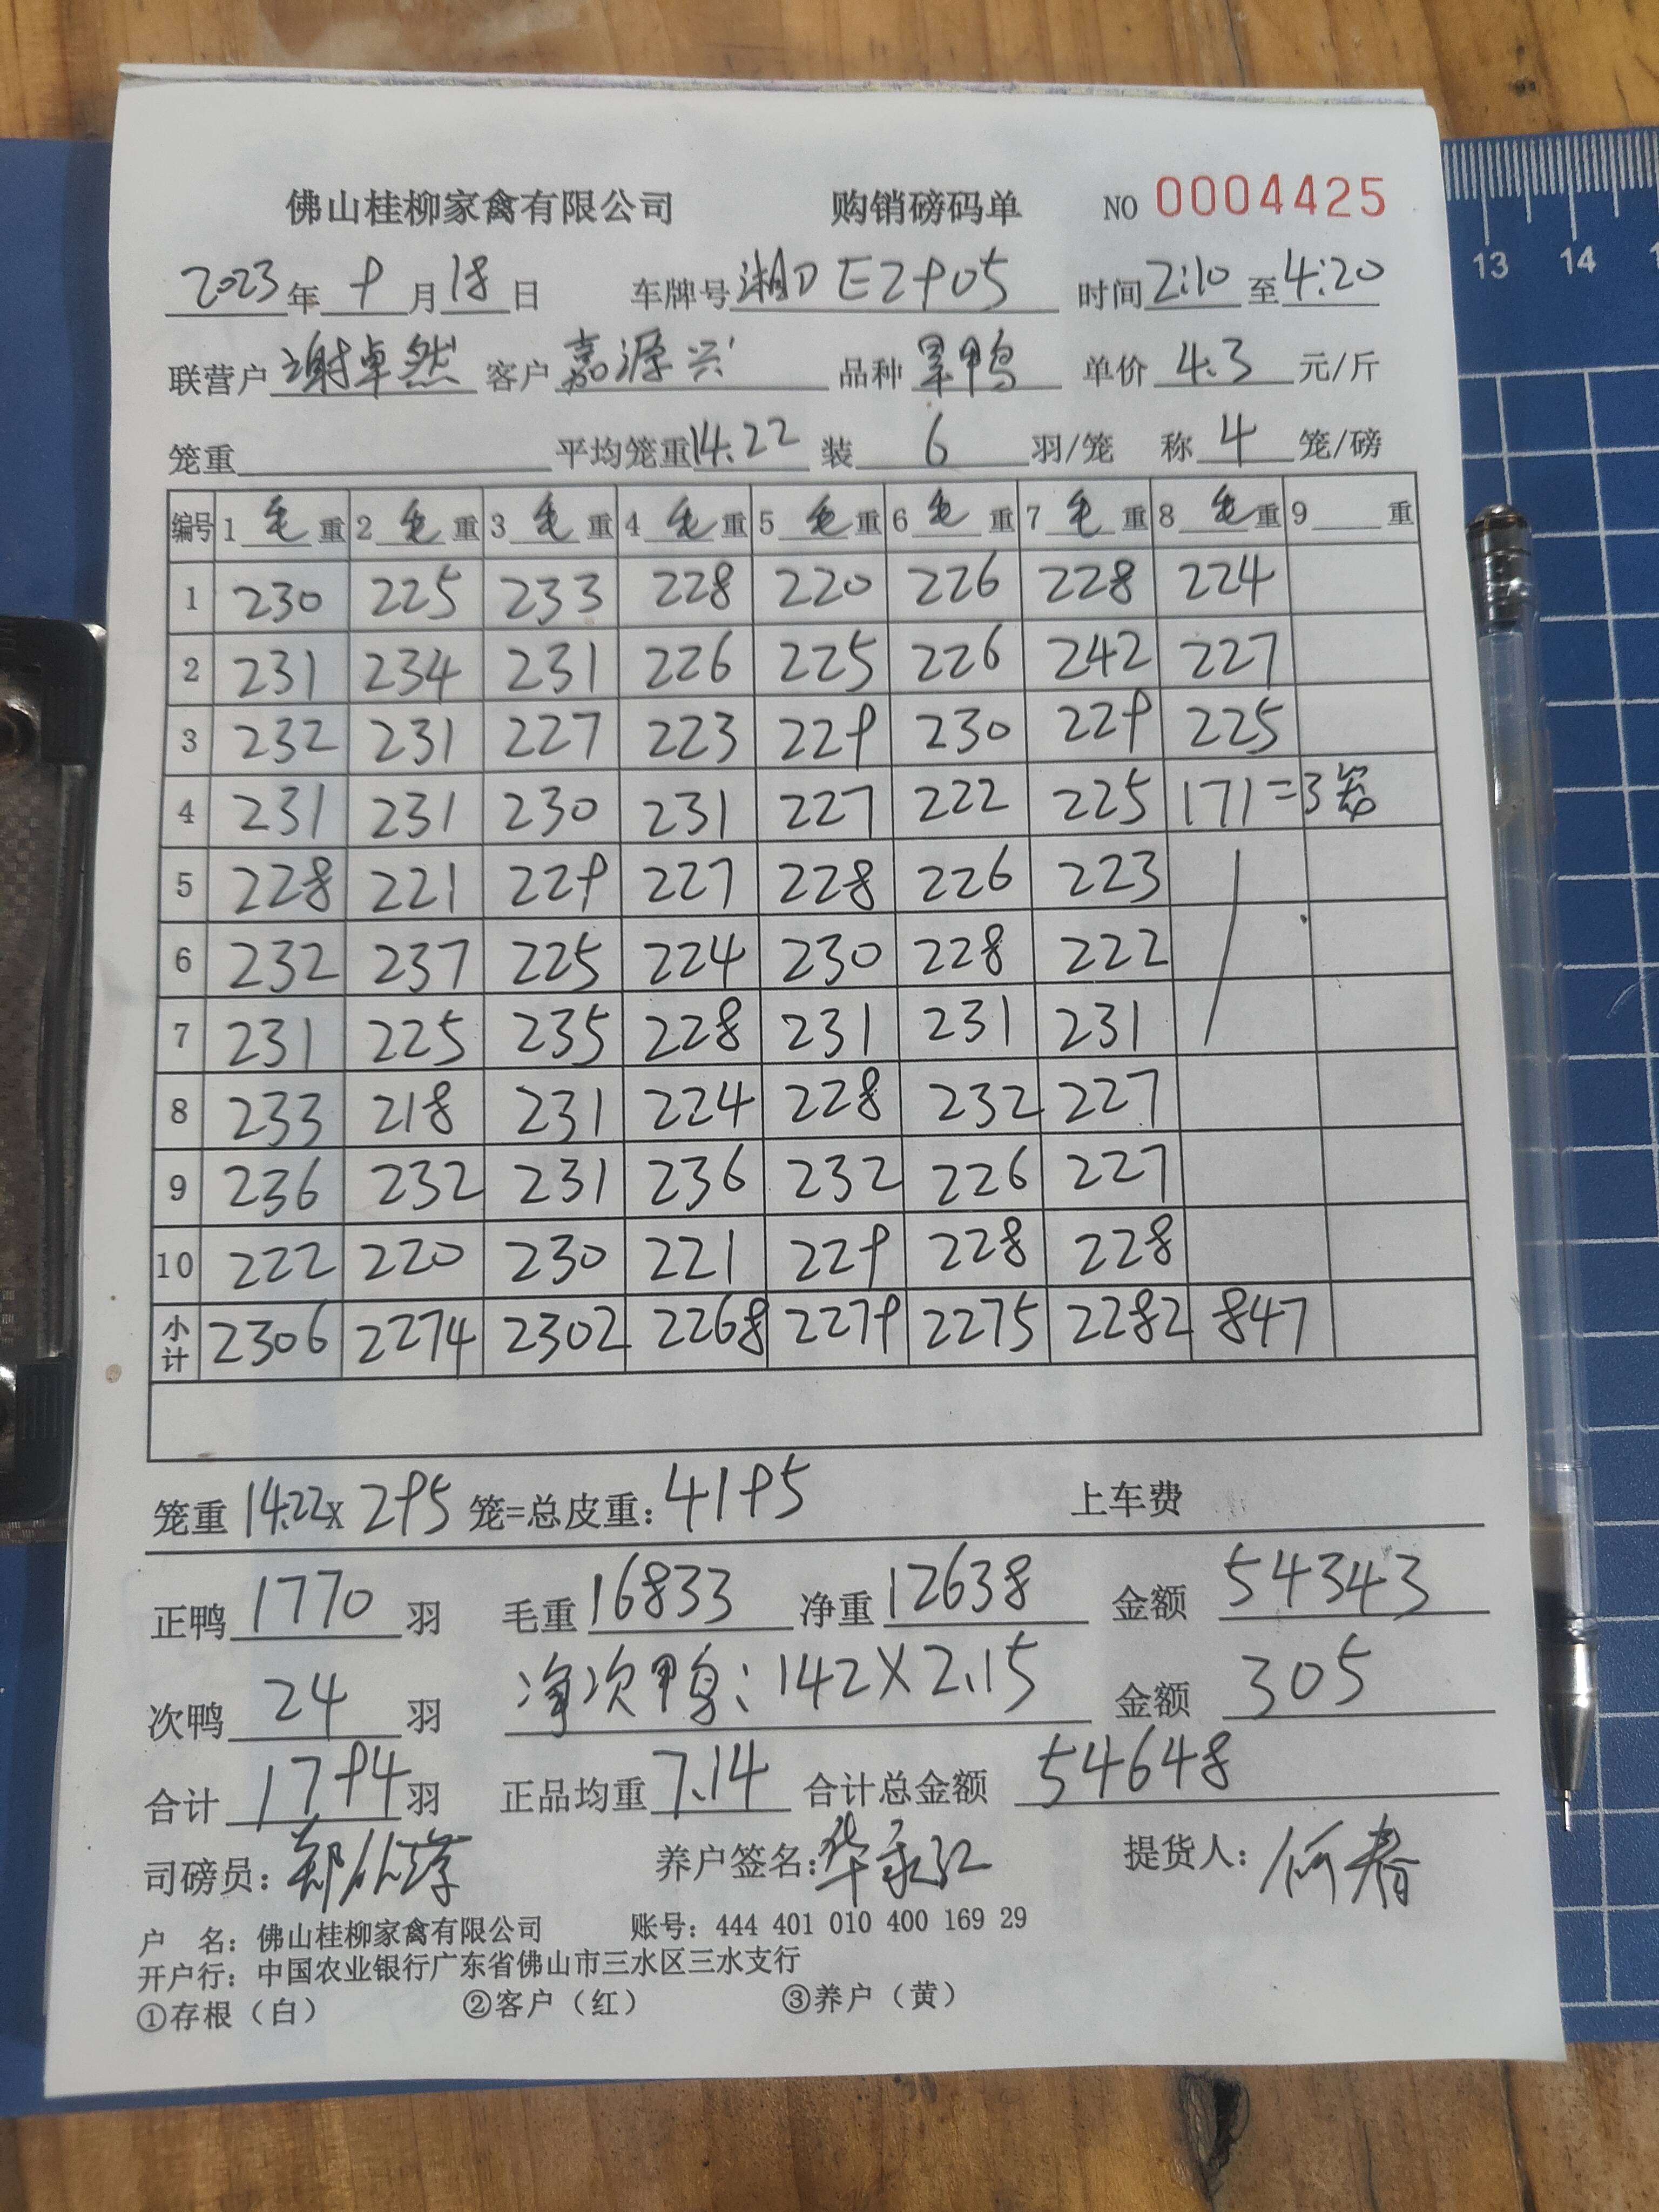 佛山桂柳家禽有限公司 购销磅码单 NO 0004425
2023年 9月18日 车牌号湘D E2905 时间2:10至4:20
联营户谢卓然 客户嘉源兴 品种 鸭 单价 4.3 元/斤
笼重 平均笼重14.22 装 6 羽/笼 称 4 笼/磅
编号 1 毛 重 2 毛 重 3 毛 重 4 毛 重 5 毛 重 6 毛 重 7 毛 重 8 毛 重 9 重
1 230 225 233 228 220 226 228 224
2 231 234 231 226 225 226 242 227
3 232 231 227 223 229 230 229 225
4 231 231 230 231 227 222 225 171=3笼
5 228 221 229 227 228 226 223
6 232 237 225 224 230 228 222
7 231 225 235 228 231 231 231
8 233 218 231 224 228 232 227
9 236 232 231 236 232 226 227
10 222 220 230 221 229 228 228
小计 2306 2274 2302 2268 2279 2275 2282 847
笼重 14.22X 295 笼=总皮重: 4195 上车费
正鸭 1770 羽 毛重 16833 净重 12638 金额 54343
次鸭 24 羽 净次鸭: 142X2.15 金额 305
合计 1794 羽 正品均重 7.14 合计总金额 54648
司磅员: 郑 养户签名: 华 江 提货人: 何春
户 名: 佛山桂柳家禽有限公司 账号: 444 401 010 400 169 29
开户行: 中国农业银行广东省佛山市三水区三水支行
①存根（白） ②客户（红） ③养户（黄）
13 14